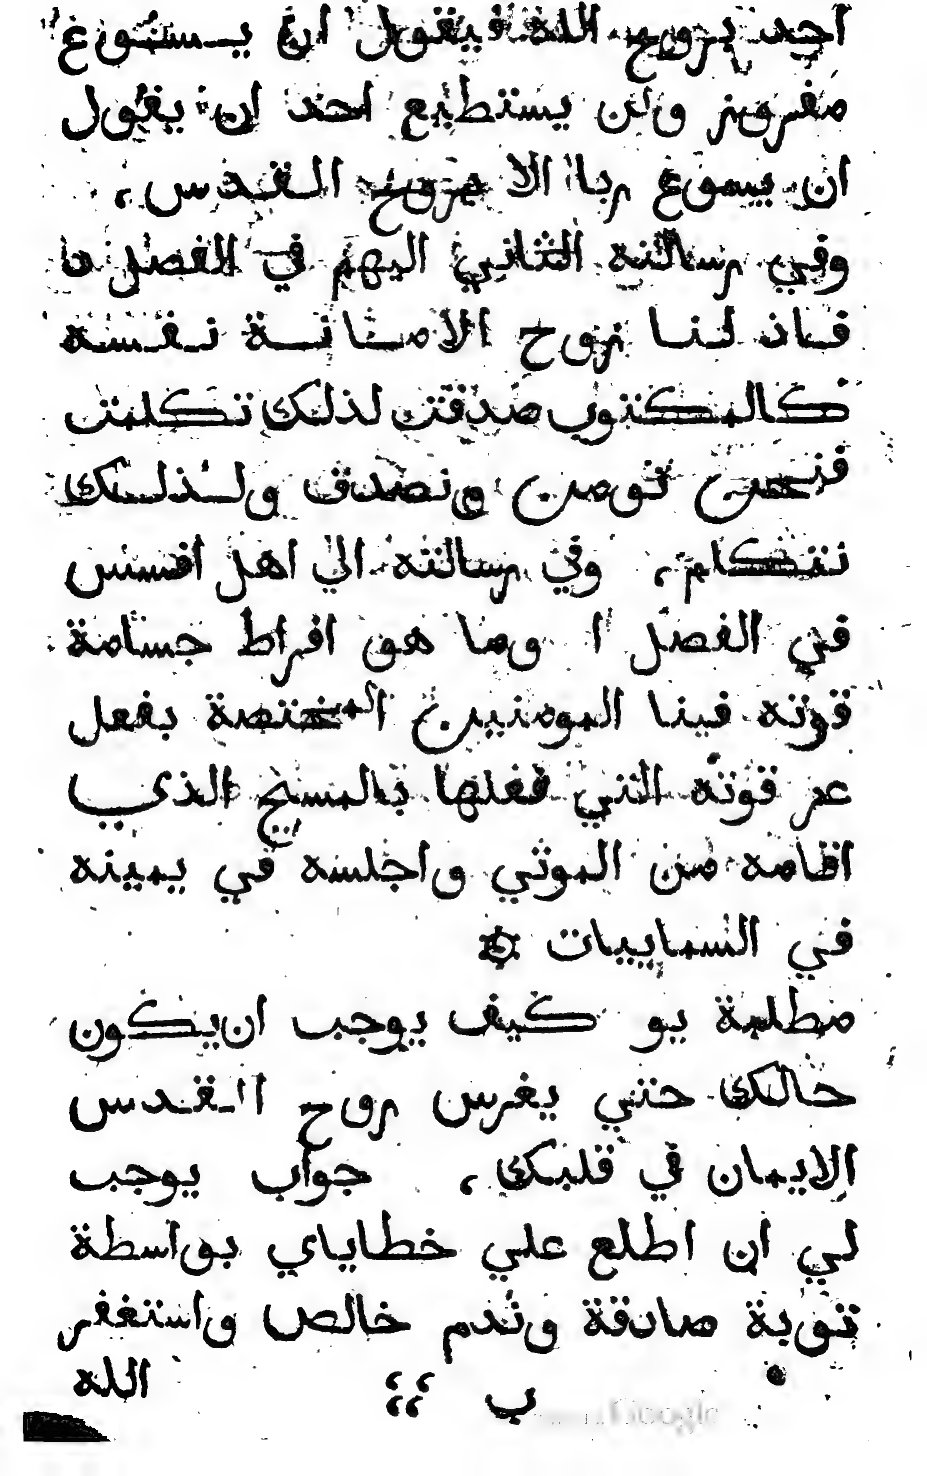 احد بروح الله فيقول ان يسوع
مفروز ولن يستطيع احد ان يقول
ان يسوع ربا الا بروح القدس،
وفي رسالته الثاني اليهم في الفصل د
فاذ لنا روح الامانة نفسه
كالمكتوب صدقت لذلك تكلمت
فنحن نومن ونصدق ولذلك
نتكلم، وفي رسالته الي اهل افسس
في الفصل ا وما هو افراط جسامة
قوته فينا المومنين المختصة بفعل
عز قوته التي فعلها بالمسيح الذي
اقامه من الموتي واجلسه في يمينه
في السماييات
مطلمة يو كيف يوجب ان يكون
حالك حتي يغرس روح القدس
الايمان في قلبك، جواب يوجب
لي ان اطلع علي خطاياي بواسطة
توبة صادقة وندم خالص واستغفر
ب ،، الله
Google